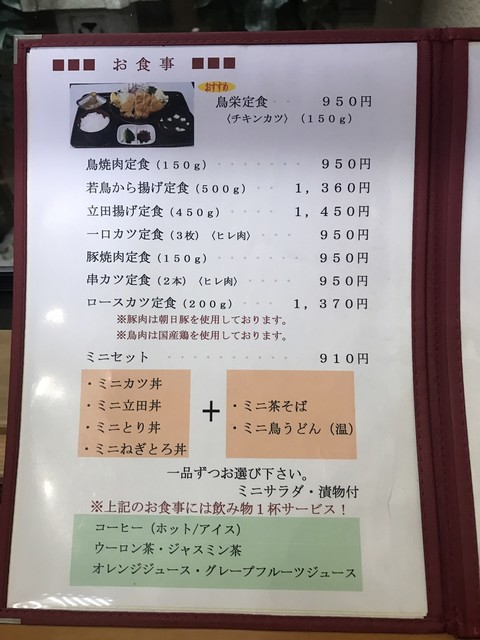 ■■■ お食事 ■■■
おすすめ
鳥栄定食 ・・ 950円
〈チキンカツ〉（150g）
鳥焼肉定食（150g） ・・・・・・・ 950円
若鳥から揚げ定食（500g） ・・ 1,360円
立田揚げ定食（450g） ・・・・ 1,450円
一口カツ定食（3枚）〈ヒレ肉〉 ・・ 950円
豚焼肉定食（150g） ・・・・・・・ 950円
串カツ定食（2本）〈ヒレ肉〉 ・・・ 950円
ロースカツ定食（200g） ・・・ 1,370円
※豚肉は朝日豚を使用しております。
※鳥肉は国産鶏を使用しております。
ミニセット ・・・・・・・・・・ 910円
・ミニカツ丼
・ミニ立田丼
・ミニとり丼
・ミニねぎとろ丼
＋
・ミニ茶そば
・ミニ鳥うどん（温）
一品ずつお選び下さい。
ミニサラダ・漬物付
※上記のお食事には飲み物１杯サービス！
コーヒー（ホット/アイス）
ウーロン茶・ジャスミン茶
オレンジジュース・グレープフルーツジュース